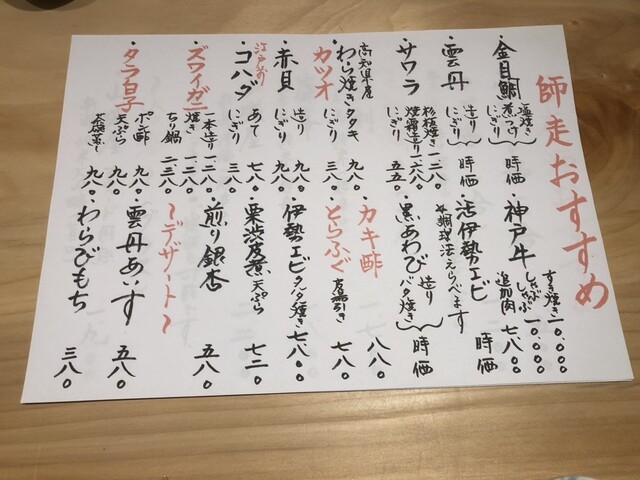 師走おすすめ
・金目鯛
塩焼き
煮つけ
にぎり
時価
・雲丹
造り
にぎり
時価
・サワラ
杉板焼き 一三八〇
焼霜造り 一六八〇
にぎり 五五〇
高知県産
・わら焼きタタキ
カツオ
にぎり
九八〇
三八〇
・赤貝
造り 九八〇
にぎり 九八〇
江戸前
・コハダ
あて 七八〇
にぎり 三八〇
・ズワイガニ
一本造り 一二八〇
焼き 一二八〇
ちり鍋 一三八〇
・タラ白子
ポン酢 九八〇
天ぷら 九八〇
茶碗蒸し 九八〇
・神戸牛
すき焼き 一〇.〇〇〇
しゃぶしゃぶ 一〇.〇〇〇
追加肉 七.八〇〇
・活伊勢エビ 時価
☆調理法えらべます
・黒あわび
造り
バタ焼き
時価
・カキ酢 八八〇
・とらふぐ 唐揚げ 七八〇
・伊勢エビタルタル焼き 七八〇
・栗渋皮煮天ぷら 七二〇
・煎り銀杏 五八〇
〜デザート〜
・雲丹あいす 五八〇
・わらびもち 三八〇